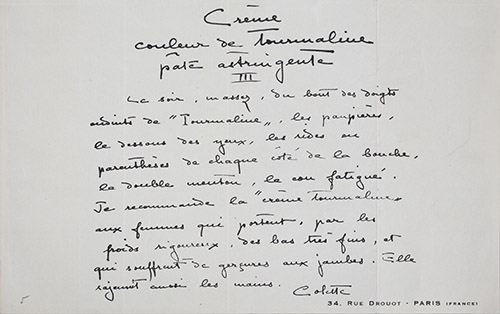 Crème
couleur de Tourmaline
pâte astringente
III
Le soir, massez, du bout des doigts
enduits de "Tourmaline", les paupières,
le dessous des yeux, les rides en
parenthèses de chaque côté de la bouche,
le double menton, le cou fatigué.
Je recommande la "crème tourmaline"
aux femmes qui portent, par les
froids rigoureux, des bas très fins, et
qui souffrent de gerçures aux jambes. Elle
rajeunit aussi les mains. Colette
34. RUE DROUOT - PARIS (FRANCE)
5